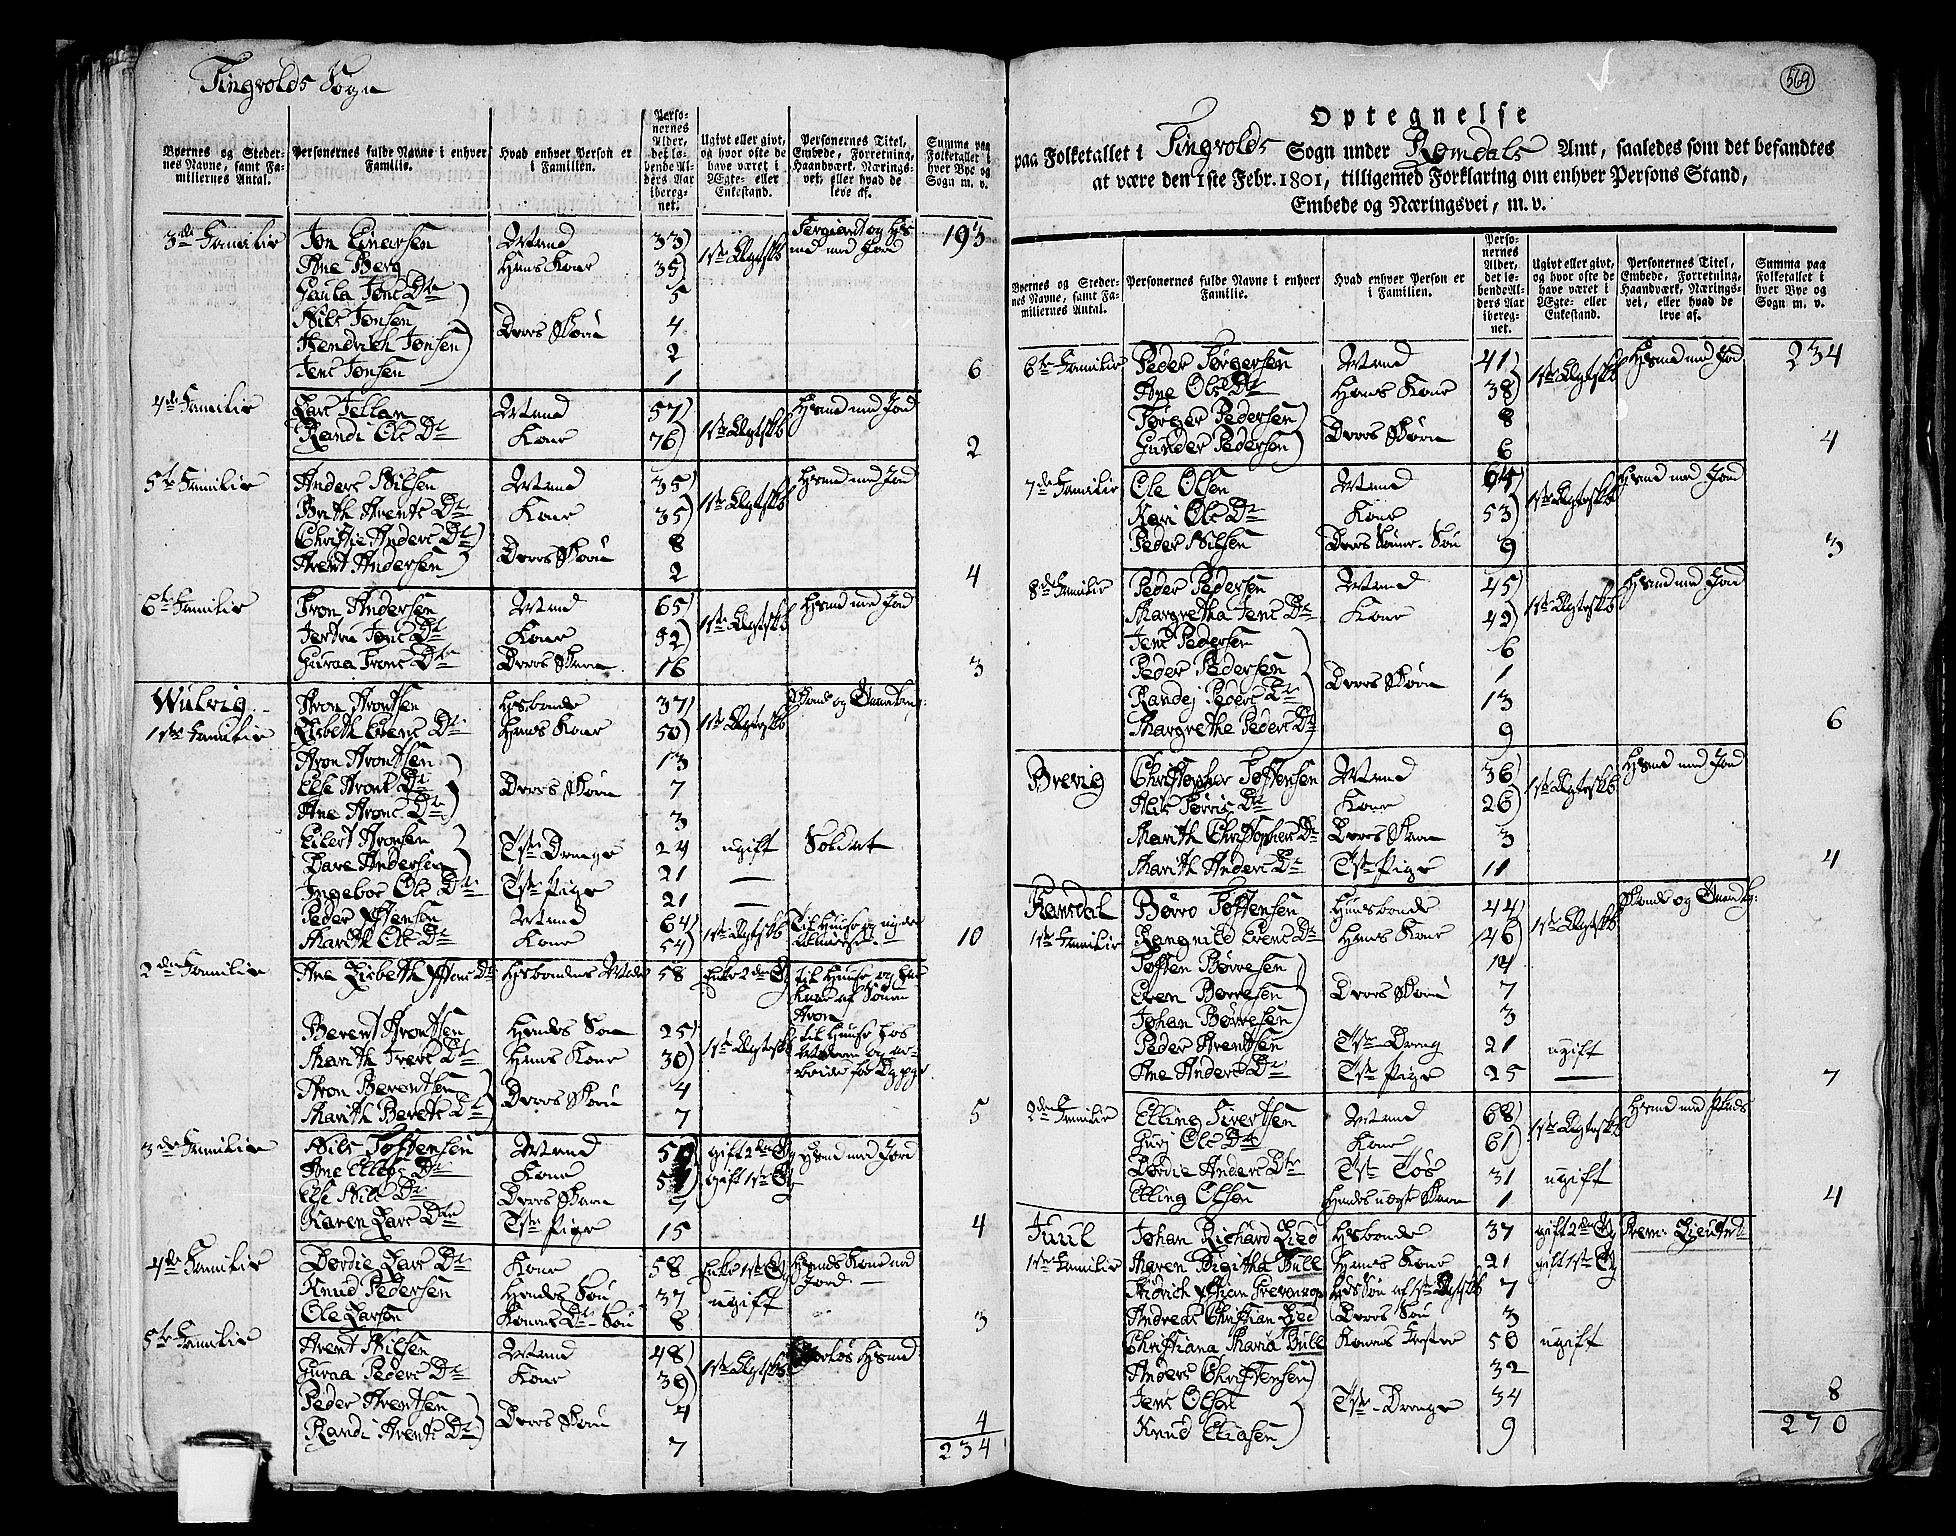 Tingvolds Sogn
Byernes og Stedernes Navne, samt Familiernes Antal.
Personernes fulde Navne i enhver Familie.
Hvad enhver Person er i Familien.
Personernes Alder, det løbende Alders Aar iberegnet.
Ugivt eller givt, og hvor ofte de have været i Ægte- eller Enkestand.
Personernes Titel, Embede, Forretning, Haandværk, Næringsvei, eller hvad de leve af.
Summa paa Folketallet i hver Bye og Sogn m. v.
3die Familie Jon Einersen Mand 33 1ste Ægtesk: 193
Ane Berg Hans Kone 35
Jens Dtr 5
Nils Jonsen Deres Børn 4
Hendrich Jonsen 2
Jens Jonsen 1 6
4de Familie Lars Mand 57 1ste Ægtesk: Hsmd med Jord
Randi Ols Dtr Kone 76 2
5te Familie Anders Nilsen Mand 35 1ste Ægtesk: Hsmd med Jord
Brith Arents Dtr Kone 35
Christie Anders Dtr Deres Børn 8
Arent Andersen 2 4
6te Familie Tron Andersen Mand 65 1ste Ægtesk: Hsmd med Jord
Jens Dtr Kone 52
Guraa Trons Dtr Deres Barn 16 3
Wulvig
1ste Familie Aron Arontsen Hsbonde 37 1ste Ægtesk:
Lisbeth Evens Dtr Hans Kone 50
Aron Arontsen 13
Else Aront Dtr Deres Børn 7
Ane Arons Dtr 3
Eilert Aronsen Tste Drenge 24 ugift Soldat
Andersen 21 —
Ingebor Ols Dtr Tste Pige 21 —
Peder Mand 64 1ste Ægtesk:
Marith Ols Dtr Kone 54 10
2den Familie Ane Lisbeth Hsbondes Moder 58 Enke 2den Eg til Huuse og
af Sønen
Aron
Berent Arontsen Hendes Søn 25 1ste Ægtesk: til Huuse hos
Marith Ivers Dtr Hans Kone 30
Aron Berentsen Deres Børn 4
Marith Berents Dtr 7 5
3die Familie Nils Toffensen Mand gift 2den Eg Hsmd med Jord
Ane Ellings Dtr Kone gift 1ste Eg
Else Nils Dtr Deres Barn 7
Karen Lars Dtr Tste Pige 15 4
4de Familie Dordie Lars Dtr Kone 58 Enke 1ste Eg
Knud Pedersen Hendes Søn 37 ugift Jord —
Ole Larsen Konens Dtr Søn 8 3
5te Familie Arent Nilsen Mand 48 1ste Ægtesk: Hsmd
Guraa Peders Dtr Kone 39
Peder Arentsen Deres Børn 4
Randi Arents Dtr 7 4
234
569
Optegnelse
paa Folketallet i Tingvolds Sogn under Romdals Amt, saaledes som det befandtes
at være den 1ste Febr. 1801, tilligemed Forklaring om enhver Persons Stand,
Embede og Næringsvei, m. v.
Byernes og Stedernes Navne, samt Familiernes Antal.
Personernes fulde Navne i enhver Familie.
Hvad enhver Person er i Familien.
Personernes Alder, det løbende Alders Aar iberegnet.
Ugivt eller givt, og hvor ofte de have været i Ægte- eller Enkestand.
Personernes Titel, Embede, Forretning, Haandværk, Næringsvei, eller hvad de leve af.
Summa paa Folketallet i hver Bye og Sogn m. v.
6te Familie Peder Torgersen Mand 41 1ste Ægtesk: Hsmd med Jord 234
Ane Ols Dtr Hans Kone 38
Torger Pedersen Deres Børn 8
Gunder Pedersen 6 4
7de Familie Ole Olsen Mand 64 1ste Ægtesk: Hsmd med Jord
Kari Ols Dtr Kone 53
Peder Nilsen Deres Sønne-Søn 9 3
8de Familie Peder Pedersen Mand 45 1ste Ægtesk: Hsmd med Jord
Margretha Jens Dtr Kone 42
Jens Pedersen 6
Peder Pedersen Deres Børn 1
Randej Peders Dtr 13
Margrethe Peders Dtr 9 6
Brevig Christopher Toffensen Mand 36 1ste Ægtesk: Hsmd med Jord
Dtr Kone 26
Marith Christophers Dtr Deres Barn 3
Marith Anders Dtr Tste Pige 11 4
Ramsdal Børre Toffensen Huusbonde 44 1ste Ægtesk:
1ste Familie Rangnild Evens Dtr Hans Kone 46
Toffen Børresen 14
Even Børresen Deres Børn 7
Johan Børresen 3
Peder Arentsen Tste Dreng 21 ugift
Ane Anders Dtr Tste Pige 25 — 7
2den Familie Elling Sivertsen Mand 68 1ste Ægtesk:
Guri Ols Dtr Kone 61
Dordie Anders Dtr Tste Tøs 31 ugift
Elling Olsen Hendes uægte Barn 1 4
Juul Johan Richard Lied Hsbonde 37 gift 2den Eg Prem: Lieutnt
1ste Familie Maren Birgitha Bull Hans Kone 21 gift 1ste Eg
7
Andreas Christian Lied Deres Søn 3
Christiana Maria Bull Konens Søster 50 ugift
Anders Christensen 32
Jens Olsen Tste Drenge 34
Knud Eliasen 9 8
270